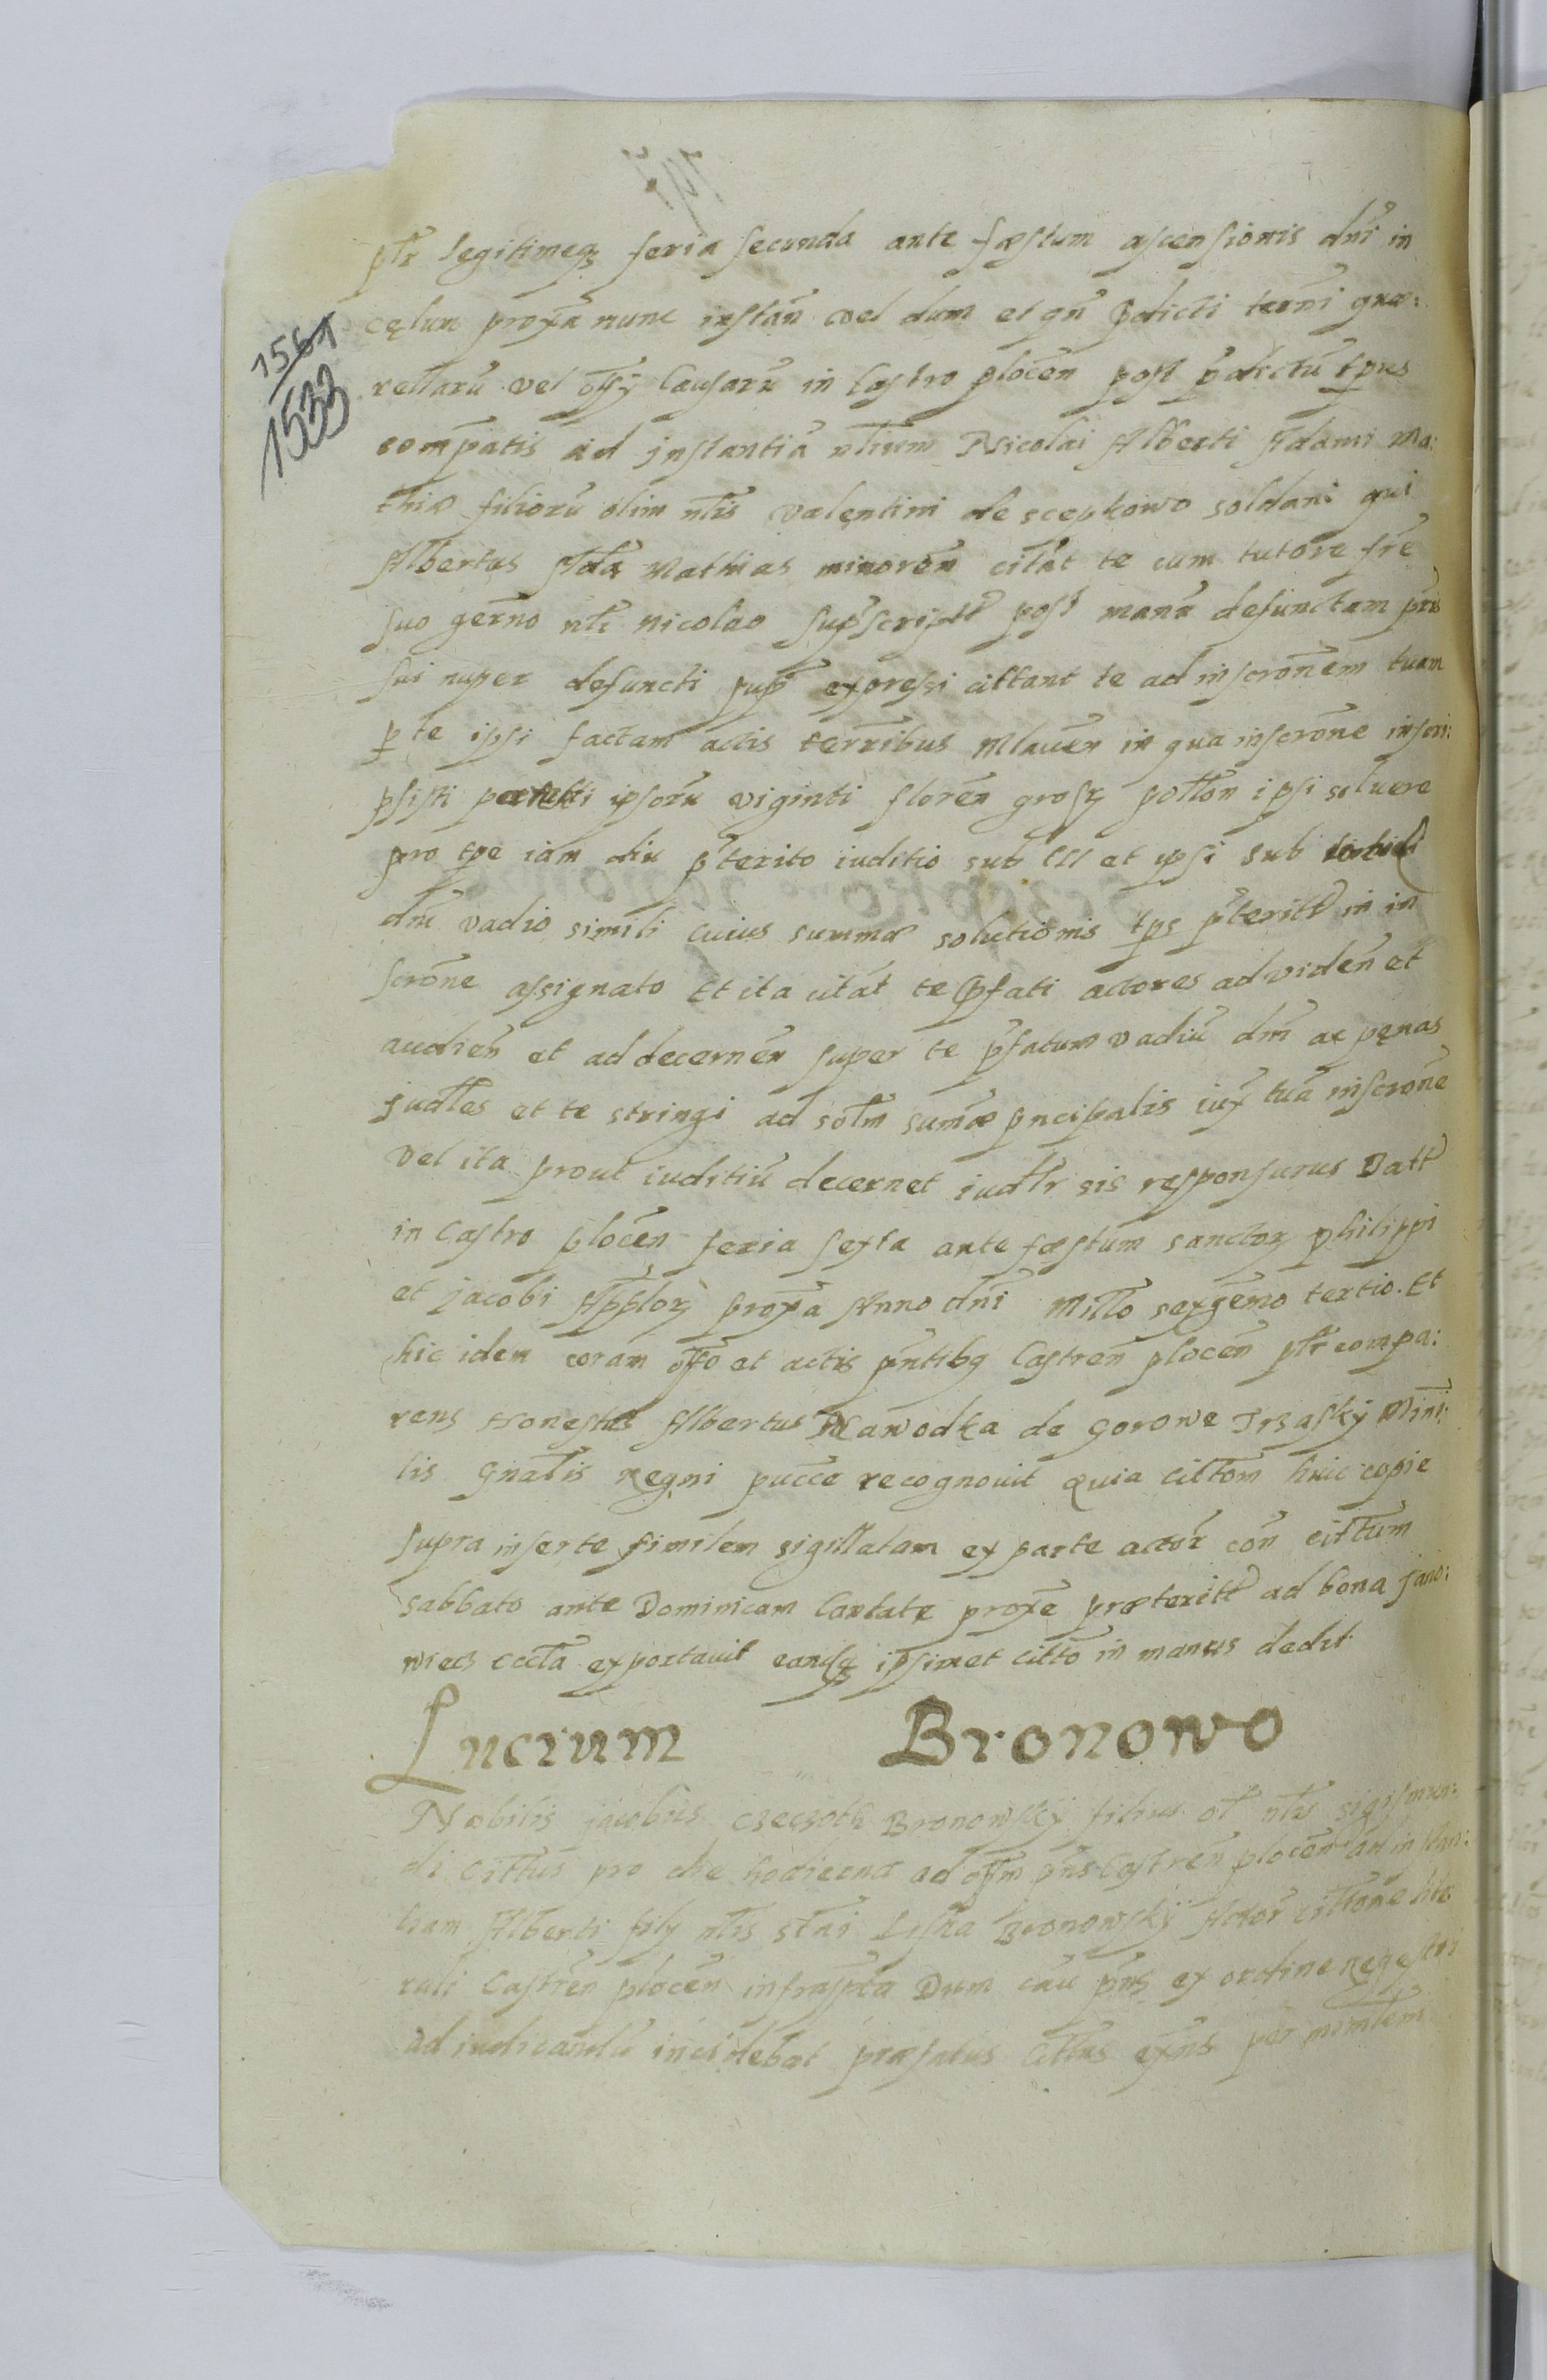 1561
1533
ptr legitimeq; feria secunda ante fæstum ascensionis dni in
cęlum proxa nunc instan vel dum et qn pdicti termi quæ:
rellaru vel offy Causaru in Castro plocen post pdictu tpus
compatis ad jnstantiá nlium Nicolai Alberti Adami Ma:
thiæ filioru olim nlis valentini de scepkowo soldani qui
Albertus Ada Mathias minoren citát te cum tutore fre
suo germo nli nicolao supscriptt post manu defunctam pris
sui nuper defuncti sup expressi cittant te ad inscronem tuam
p te ipsi factam actis terribus Mlauen in qua inscrone inscri:
psisti parenti ipsoru viginti floren grosz pollon ipsi soluere
pro tpe iam diu pterito iuditio sub lll et ipsi sub
dni vadio simili cuius summæ solutionis tps pteritt in in
scrone assignato Et ita citát te pfati actores ad viden et
audien et ad decernen super te pfatum vadiu dni ac pęnas
judles et te stringi ad solm sumæ pncipalis iux tuá inscrone
vel ita prout iuditiu decernet iudlr sis responsurus Datt
in Castro plocen feria sexta ante fæstum sanctorz philippi
et jacobi Apploz proxa Anno dni Millo sexgemo tertio. Et
hic idem coram offo et actis pntibq Castren plocen ptr compa:
rens Honestus Albertus Nawodka de gorowe Trzasky Mini:
lis gnalis regni pucce recognouit quia cittom huic copie
supra inserte similem sigillatam ex parte actor con cittum
sabbato ante Dominicam Cantate proxe præteritt ad bona jano:
wiecz ccta exportauit eandq ipsimet citto in manus dedit
Lucrum Bronowo
Nobilis jacobus czeczotk Bronowsky filius ol nlis sigismun:
di Cittus pro die hodierna ad offm pns Castren plocen an instan:
tiam Alberti fily nlis stni Lisna Bronowsky Actor cittone lite
rali Castren plocen infrascpta Dum cau pns ex ordine regestri
ad iudicandu incidebat præfatus Cittus exns per minlem